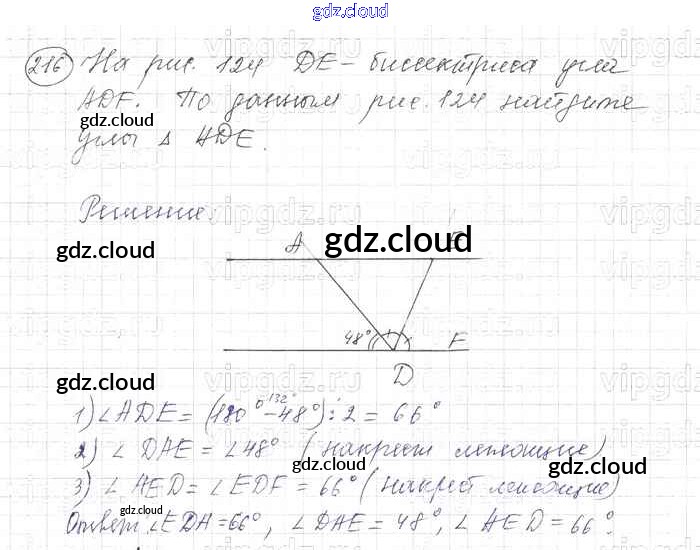 gdz.cloud
216 На рис. 124 DE – биссектриса угла
ADF. По данным рис. 124 найдите
gdz.cloud
углы Δ ADE.
Решение.
gdz.cloud
A gdz.cloud E
48°
F
D
gdz.cloud
gdz.cloud
132°
1) ∠ADE = (180° – 48°) : 2 = 66°
2) ∠ DAE = ∠48° (накрест лежащие)
gdz.cloud
gdz.cloud
3) ∠ AED = ∠EDF = 66° (накрест лежащие)
gdz.cloud
Ответ: ∠EDA = 66°, ∠DAE = 48°, ∠ AED = 66°.
gdz.cloud
gdz.cloud